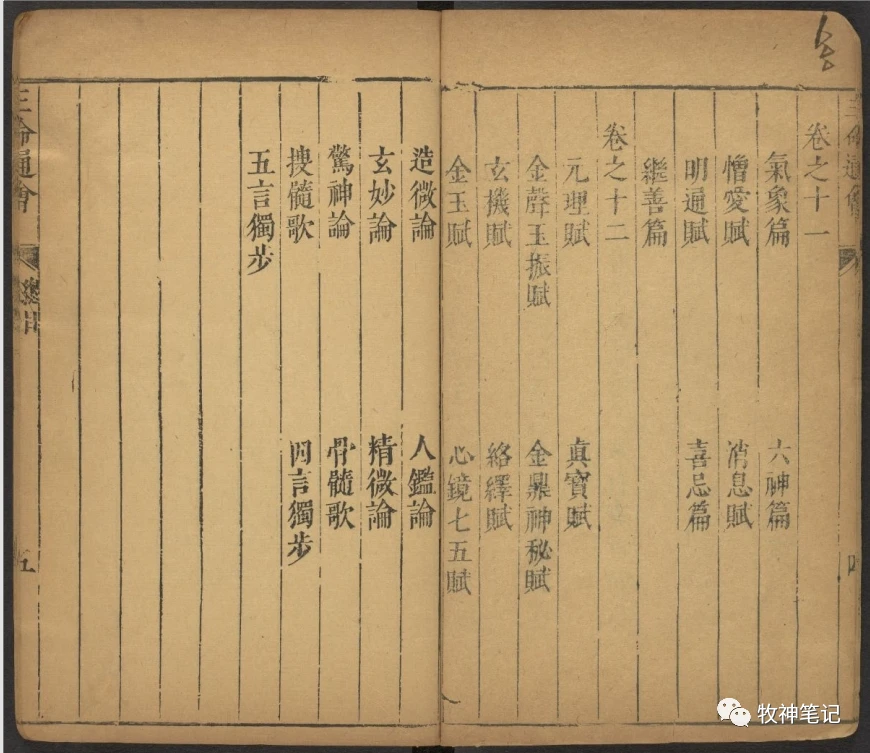 三命通會
卷之十一
氣象篇 六神篇
憎愛賦 消息賦
明通賦 喜忌篇
繼善篇
卷之十二
元理賦 真寶賦
金聲玉振賦 金鼎神秘賦
玄機賦 絡繹賦
金玉賦 心鏡七五賦
造微論 人鑑論
玄妙論 精微論
驚神論 骨髓歌
捜髓歌 四言獨步
五言獨步
三命通會
五
牧神笔记